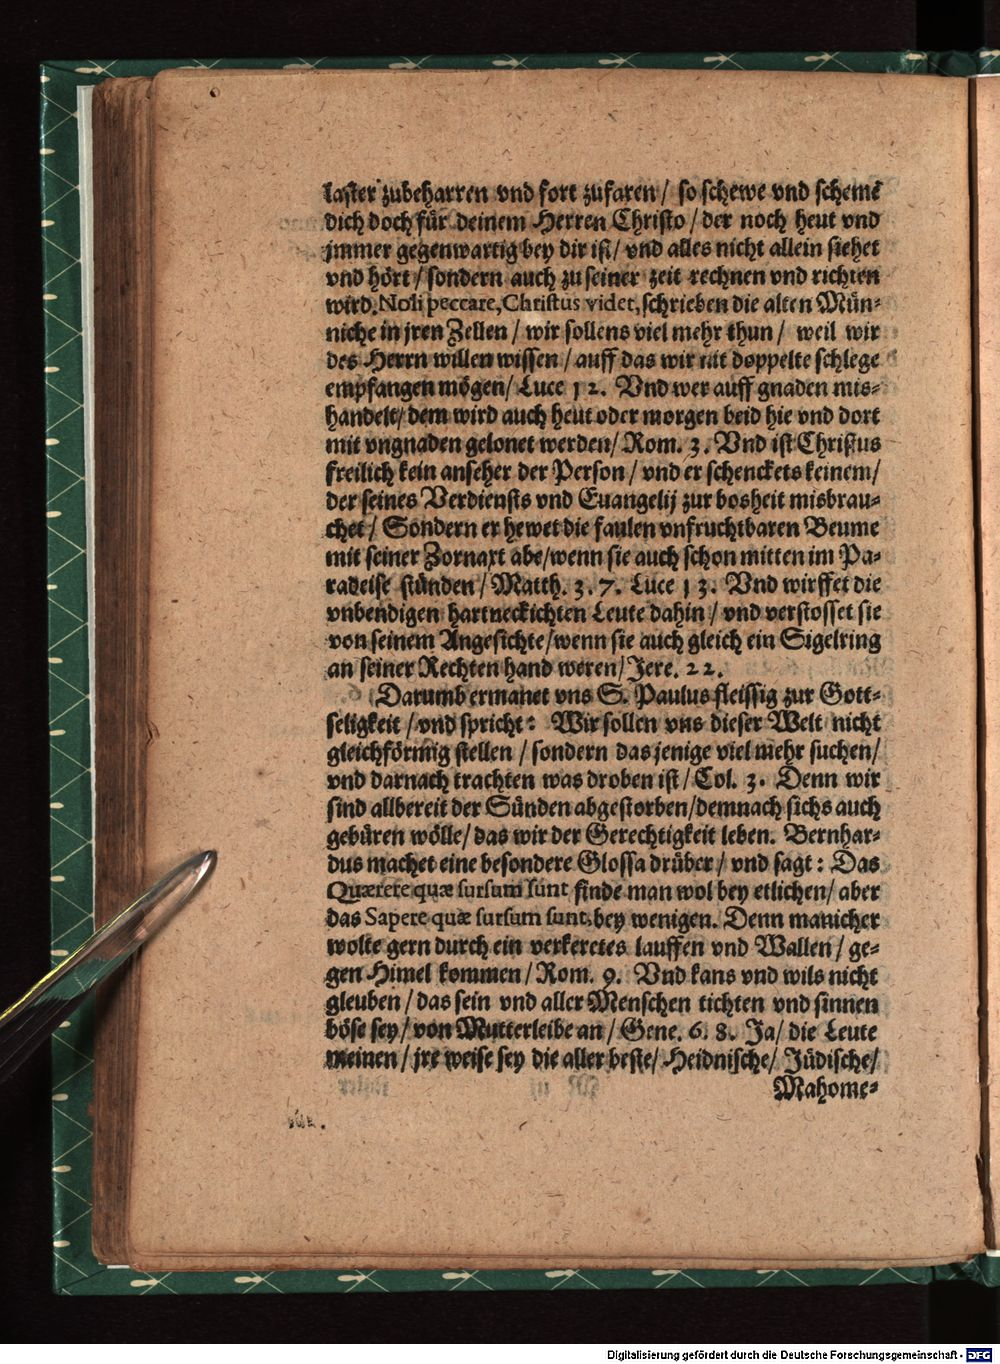 laster zubeharren vnd fort zufaren / so schewe vnd schemē
dich doch für deinem Herren Christo / der noch heut vnd
jmmer gegenwartig bey dir ist / vnd alles nicht allein siehet
vnd hört / sondern auch zu seiner zeit rechnen vnd richten
wird. Noli peccare, Christus videt, schrieben die alten Mün-
niche in jren Zellen / wir sollens viel mehr thun / weil wir
des Herrn willen wissen / auff das wir nit doppelte schlege
empfangen mögen / Luce 12. Vnd wer auff gnaden mis-
handelt / dem wird auch heut oder morgen beid hie vnd dort
mit vngnaden gelonet werden / Rom. 3. Vnd ist Christus
freilich kein anseher der Person / vnd er schenckets keinem /
der seines Verdiensts vnd Euangelij zur bosheit misbrau-
chet / Sondern er hewet die faulen vnfruchtbaren Beume
mit seiner Zornaxt abe / wenn sie auch schon mitten im Pa-
radeise stünden / Matth. 3. 7. Luce 13. Vnd wirffet die
vnbendigen hartneckichten Leute dahin / vnd verstosset sie
von seinem Angesichte / wenn sie auch gleich ein Sigelring
an seiner Rechten hand weren / Jere. 22.
Darumb ermanet vns S. Paulus fleissig zur Gott-
seligkeit / vnd spricht: Wir sollen vns dieser Welt nicht
gleichförmig stellen / sondern das jenige viel mehr suchen /
vnd darnach trachten was droben ist / Col. 3. Denn wir
sind allbereit der Sünden abgestorben / demnach sichs auch
gebüren wölle / das wir der Gerechtigkeit leben. Bernhar-
dus machet eine besondere Glossa drüber / vnd sagt: Das
Quærere quæ sursum sunt finde man wol bey etlichen / aber
das Sapere quæ sursum sunt, bey wenigen. Denn manicher
wolte gern durch ein verkeretes lauffen vnd Wallen / ge-
gen Himel kommen / Rom. 9. Vnd kans vnd wils nicht
gleuben / das sein vnd aller Menschen tichten vnd sinnen
böse sey / von Mutterleibe an / Gene. 6. 8. Ja / die Leute
meinen / jre weise sey die aller beste / Heidnische / Jüdische /
Mahome-
Digitalisierung gefördert durch die Deutsche Forschungsgemeinschaft - DFG